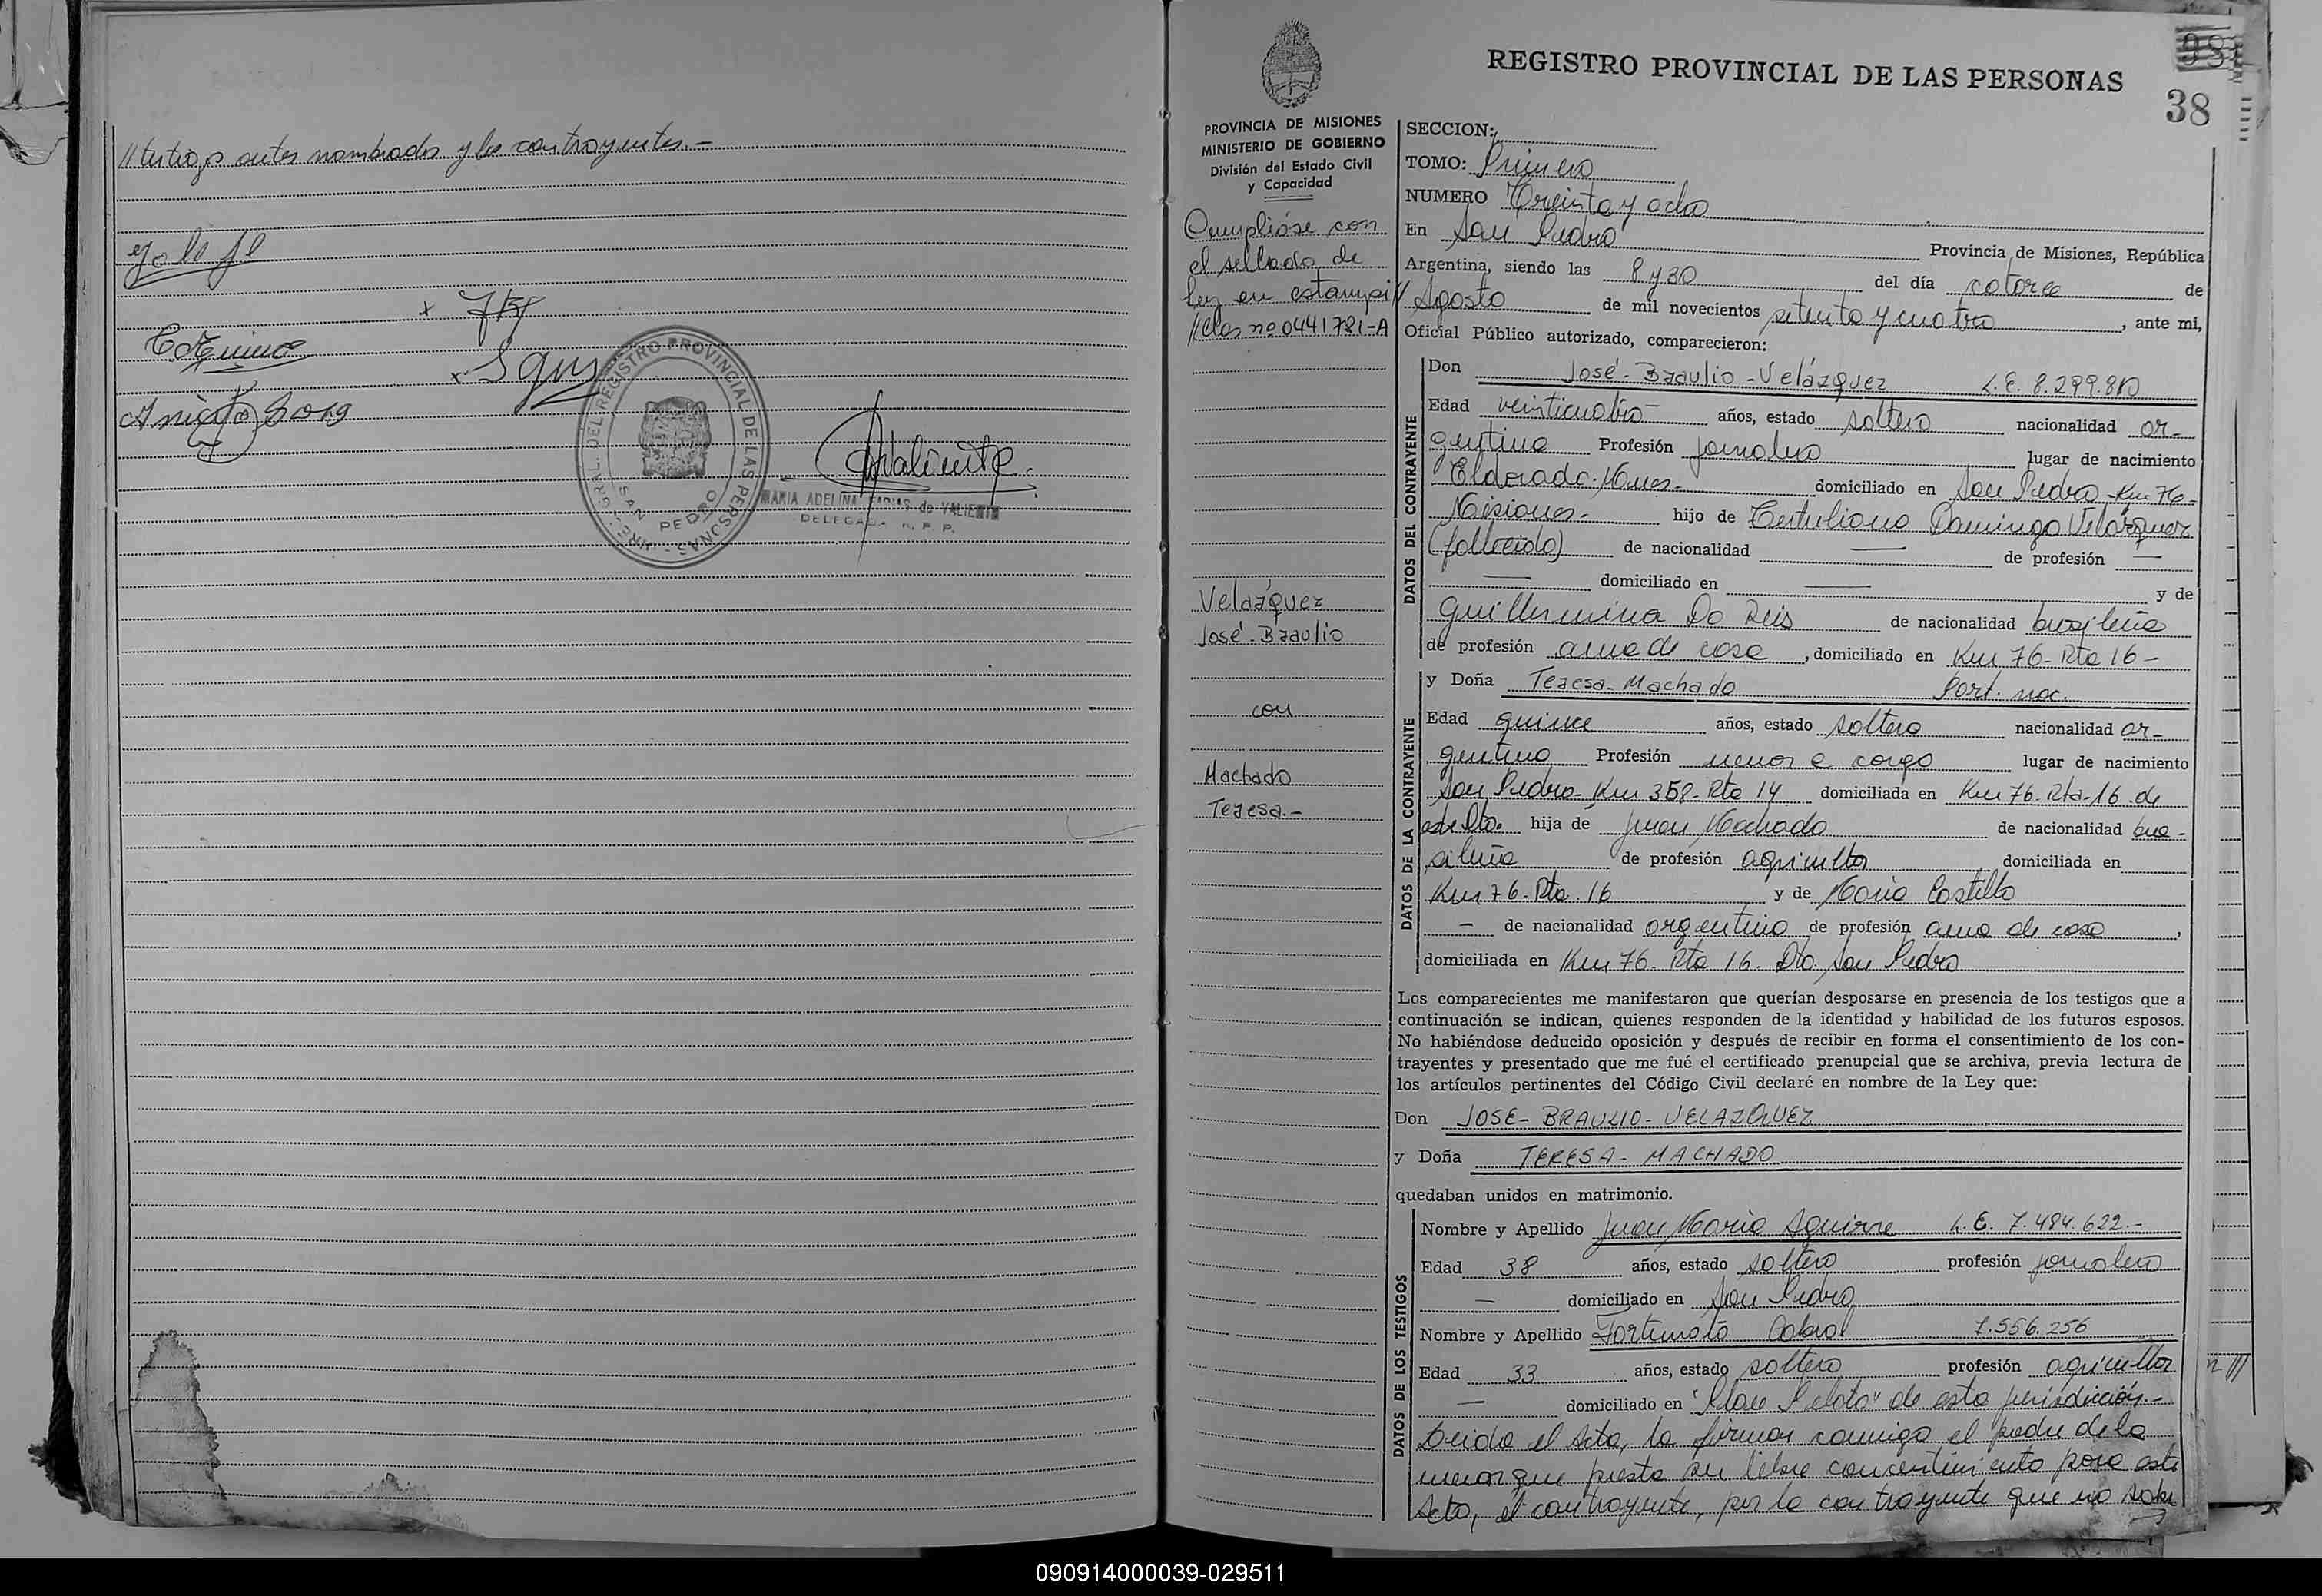 // testigos antes nombrados y los contrayentes.-
REGISTRO PROVINCIAL DE LAS PERSONAS
SAN PEDRO
MARIA ADELINA FARIAS de VALIENTE
DELEGADA R. P. P.
REGISTRO PROVINCIAL DE LAS PERSONAS
98
38
PROVINCIA DE MISIONES
MINISTERIO DE GOBIERNO
División del Estado Civil
y Capacidad
Cumplióse con
el sellado de
ley en estampi//
//llas no 0441781-A
Velázquez
José-Braulio
con
Machado
Teresa.-
SECCION:
TOMO: Primero
NUMERO Treinta y ocho
En San Pedro Provincia de Misiones, República
Argentina, siendo las 8 y 30 del día catorce de
Agosto de mil novecientos setenta y cuatro, ante mi,
Oficial Público autorizado, comparecieron:
DATOS DEL CONTRAYENTE
Don José-Braulio-Velázquez L.E. 8.299.810
Edad veinticuatro años, estado soltero nacionalidad ar-
gentina Profesión jornalero lugar de nacimiento
Eldorado-Mnes.- domiciliado en San Pedro-Km 76-
Misiones.- hijo de Tertuliano Domingo Velázquez
(fallecido) de nacionalidad — de profesión —
— domiciliado en — y de
Guillermina Do Reis de nacionalidad brasileña
de profesión ama de casa, domiciliado en Km 76-Rta 16-
DATOS DE LA CONTRAYENTE
y Doña Teresa-Machado Part. nac.
Edad quince años, estado soltera nacionalidad ar-
gentina Profesión menor a cargo lugar de nacimiento
San Pedro-Km 358-Rta 14 domiciliada en Km 76-Rta-16-de
este Dto. hija de Juan Machado de nacionalidad bra-
sileña de profesión agricultor domiciliada en
Km 76-Rta. 16 y de María Castillo
— de nacionalidad argentina de profesión ama de casa,
domiciliada en Km 76-Rta 16. Dto San Pedro
Los comparecientes me manifestaron que querían desposarse en presencia de los testigos que a
continuación se indican, quienes responden de la identidad y habilidad de los futuros esposos.
No habiéndose deducido oposición y después de recibir en forma el consentimiento de los con-
trayentes y presentado que me fué el certificado prenupcial que se archiva, previa lectura de
los artículos pertinentes del Código Civil declaré en nombre de la Ley que:
Don JOSE-BRAULIO-VELAZQUEZ
y Doña TERESA-MACHADO
quedaban unidos en matrimonio.
DATOS DE LOS TESTIGOS
Nombre y Apellido Juan María Aguirre L.E. 7.484.622.-
Edad 38 años, estado soltero profesión jornalero
— domiciliado en San Pedro
Nombre y Apellido Fortunato Cabral 7.556.256
Edad 33 años, estado soltero profesión agricultor
— domiciliado en de esta jurisdicción.-
Leida el Acta, la firman conmigo el padre de la
menor que presta su libre concentimiento para este
Acto, el contrayente, por la contrayente que no sabe
090914000039-029511